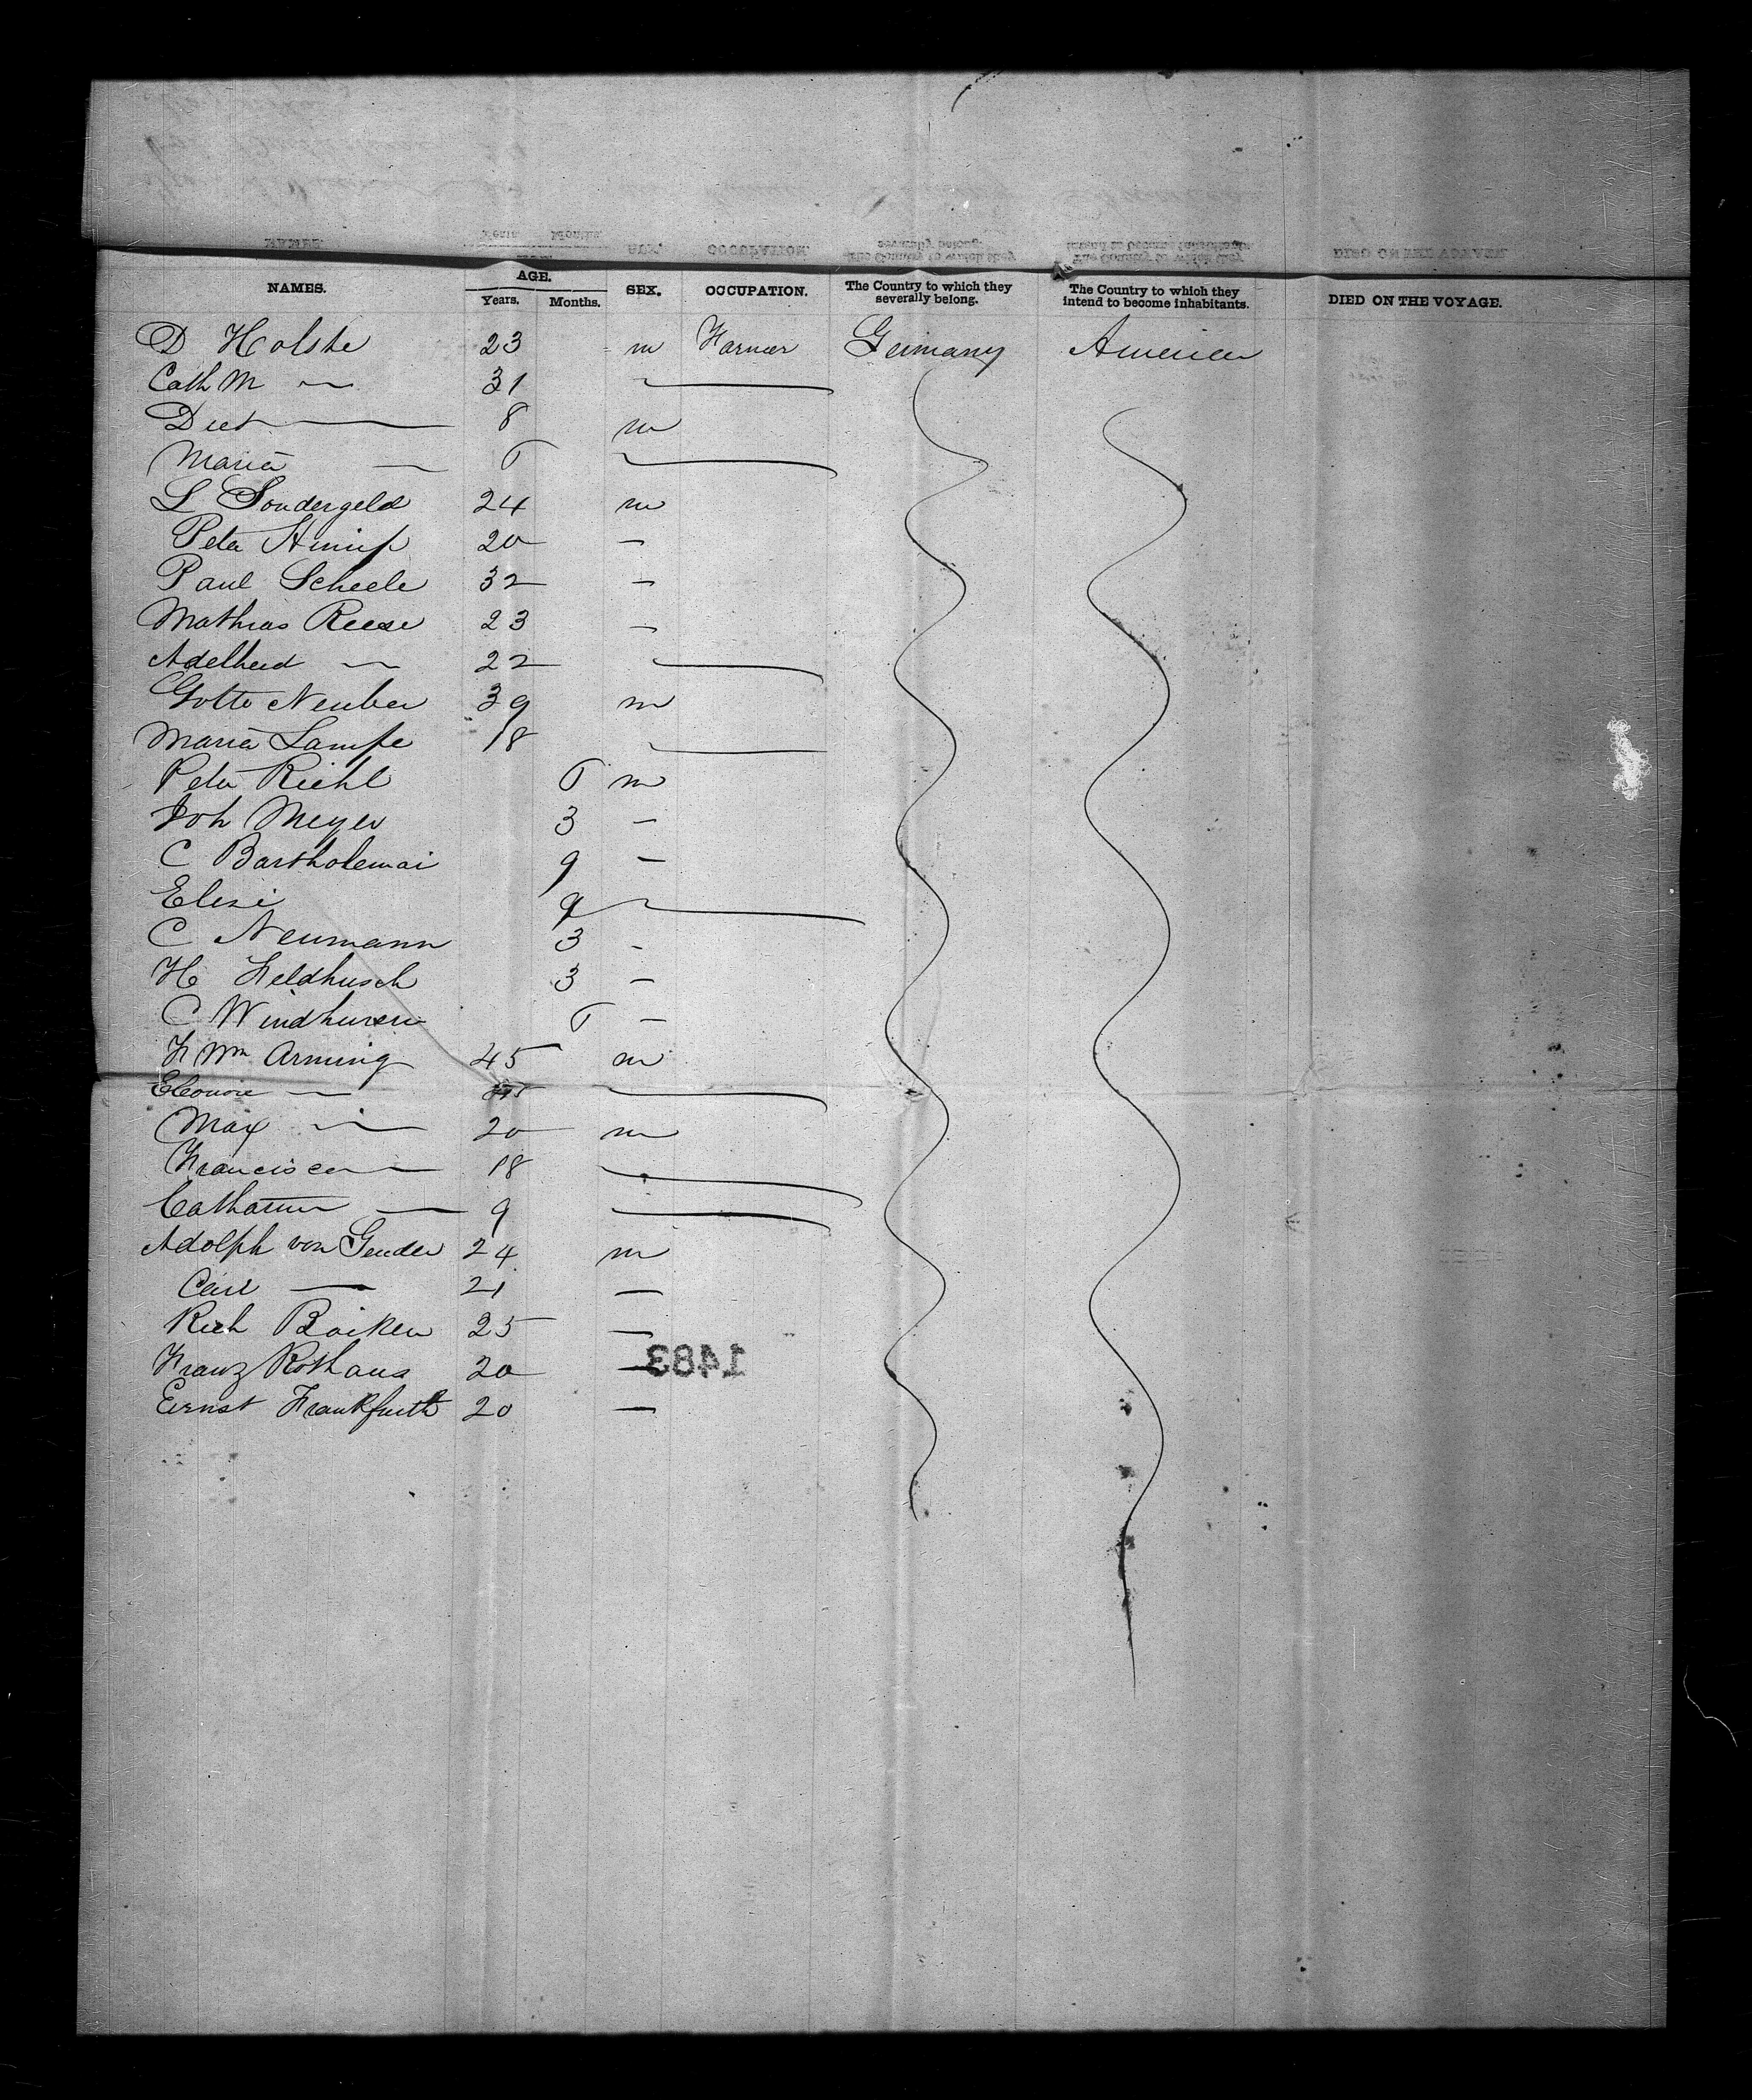 NAMES. AGE. Years. Months. SEX. OCCUPATION. The Country to which they severally belong. The Country to which they intend to become inhabitants. DIED ON THE VOYAGE.
D Holste 23 m Farmer Germany America
Cath M — 31
Diet — 8 m
Maria — 6
L Sondergeld 24 m
Peter 20 —
Paul Scheele 32 —
Mathias Reese 23 —
Adelheid — 22
Gotto Neuber 39 m
Maria Lampe 18
Peter Riehl 6 m
Joh Meyer 3 —
C Bartholemai 9 —
Elise 9
C Neumann 3 -
H Feldhusch 3 —
C 6 —
F Wm Arming 45 m
Eleonore —
Max — 20 m
Francisca — 18
Catharine — 9
Adolph von Gender 24 m
Carl — 21 —
Rich Boiken 25 —
Franz Rothaus 20 —
1483
Ernst Frankfurth 20 —